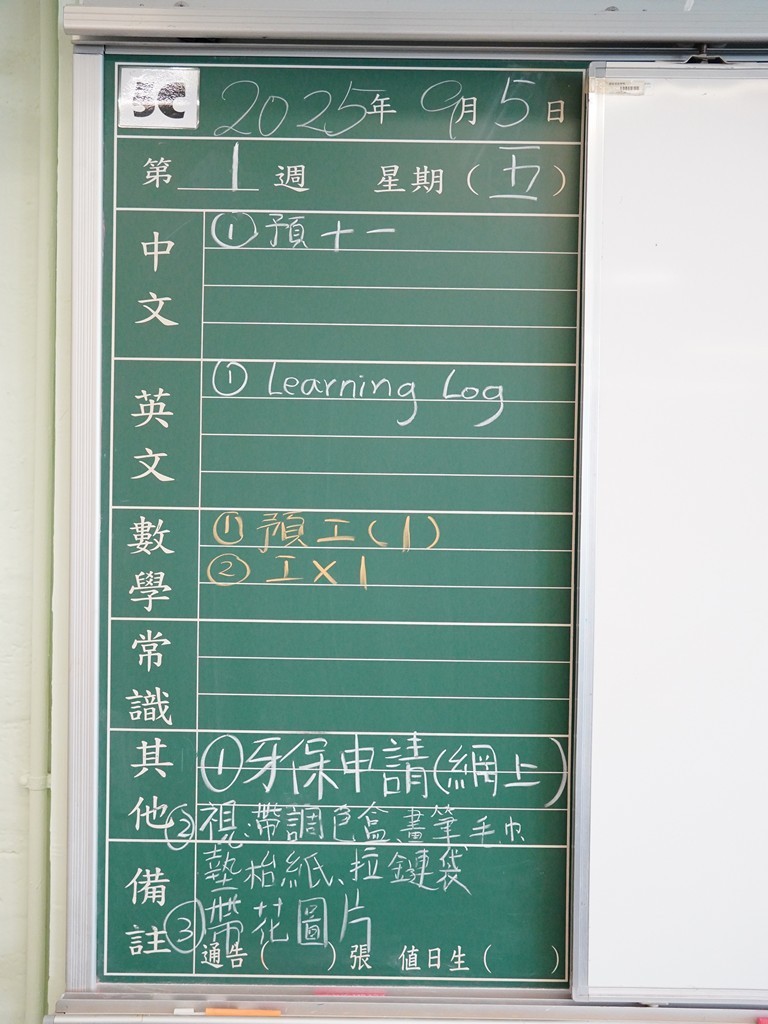 5C 2025年 9月 5日
第 1 週 星期 (五)
中文
① 預十一
英文
① Learning Log
數學
① 預工(1)
② 工X1
常識
其他
① 牙保申請(網上)
② 視:帶調色盒、畫筆、毛巾
墊枱紙、拉鏈袋
備註
③ 帶花圖片
通告 ( ) 張 值日生 ( )